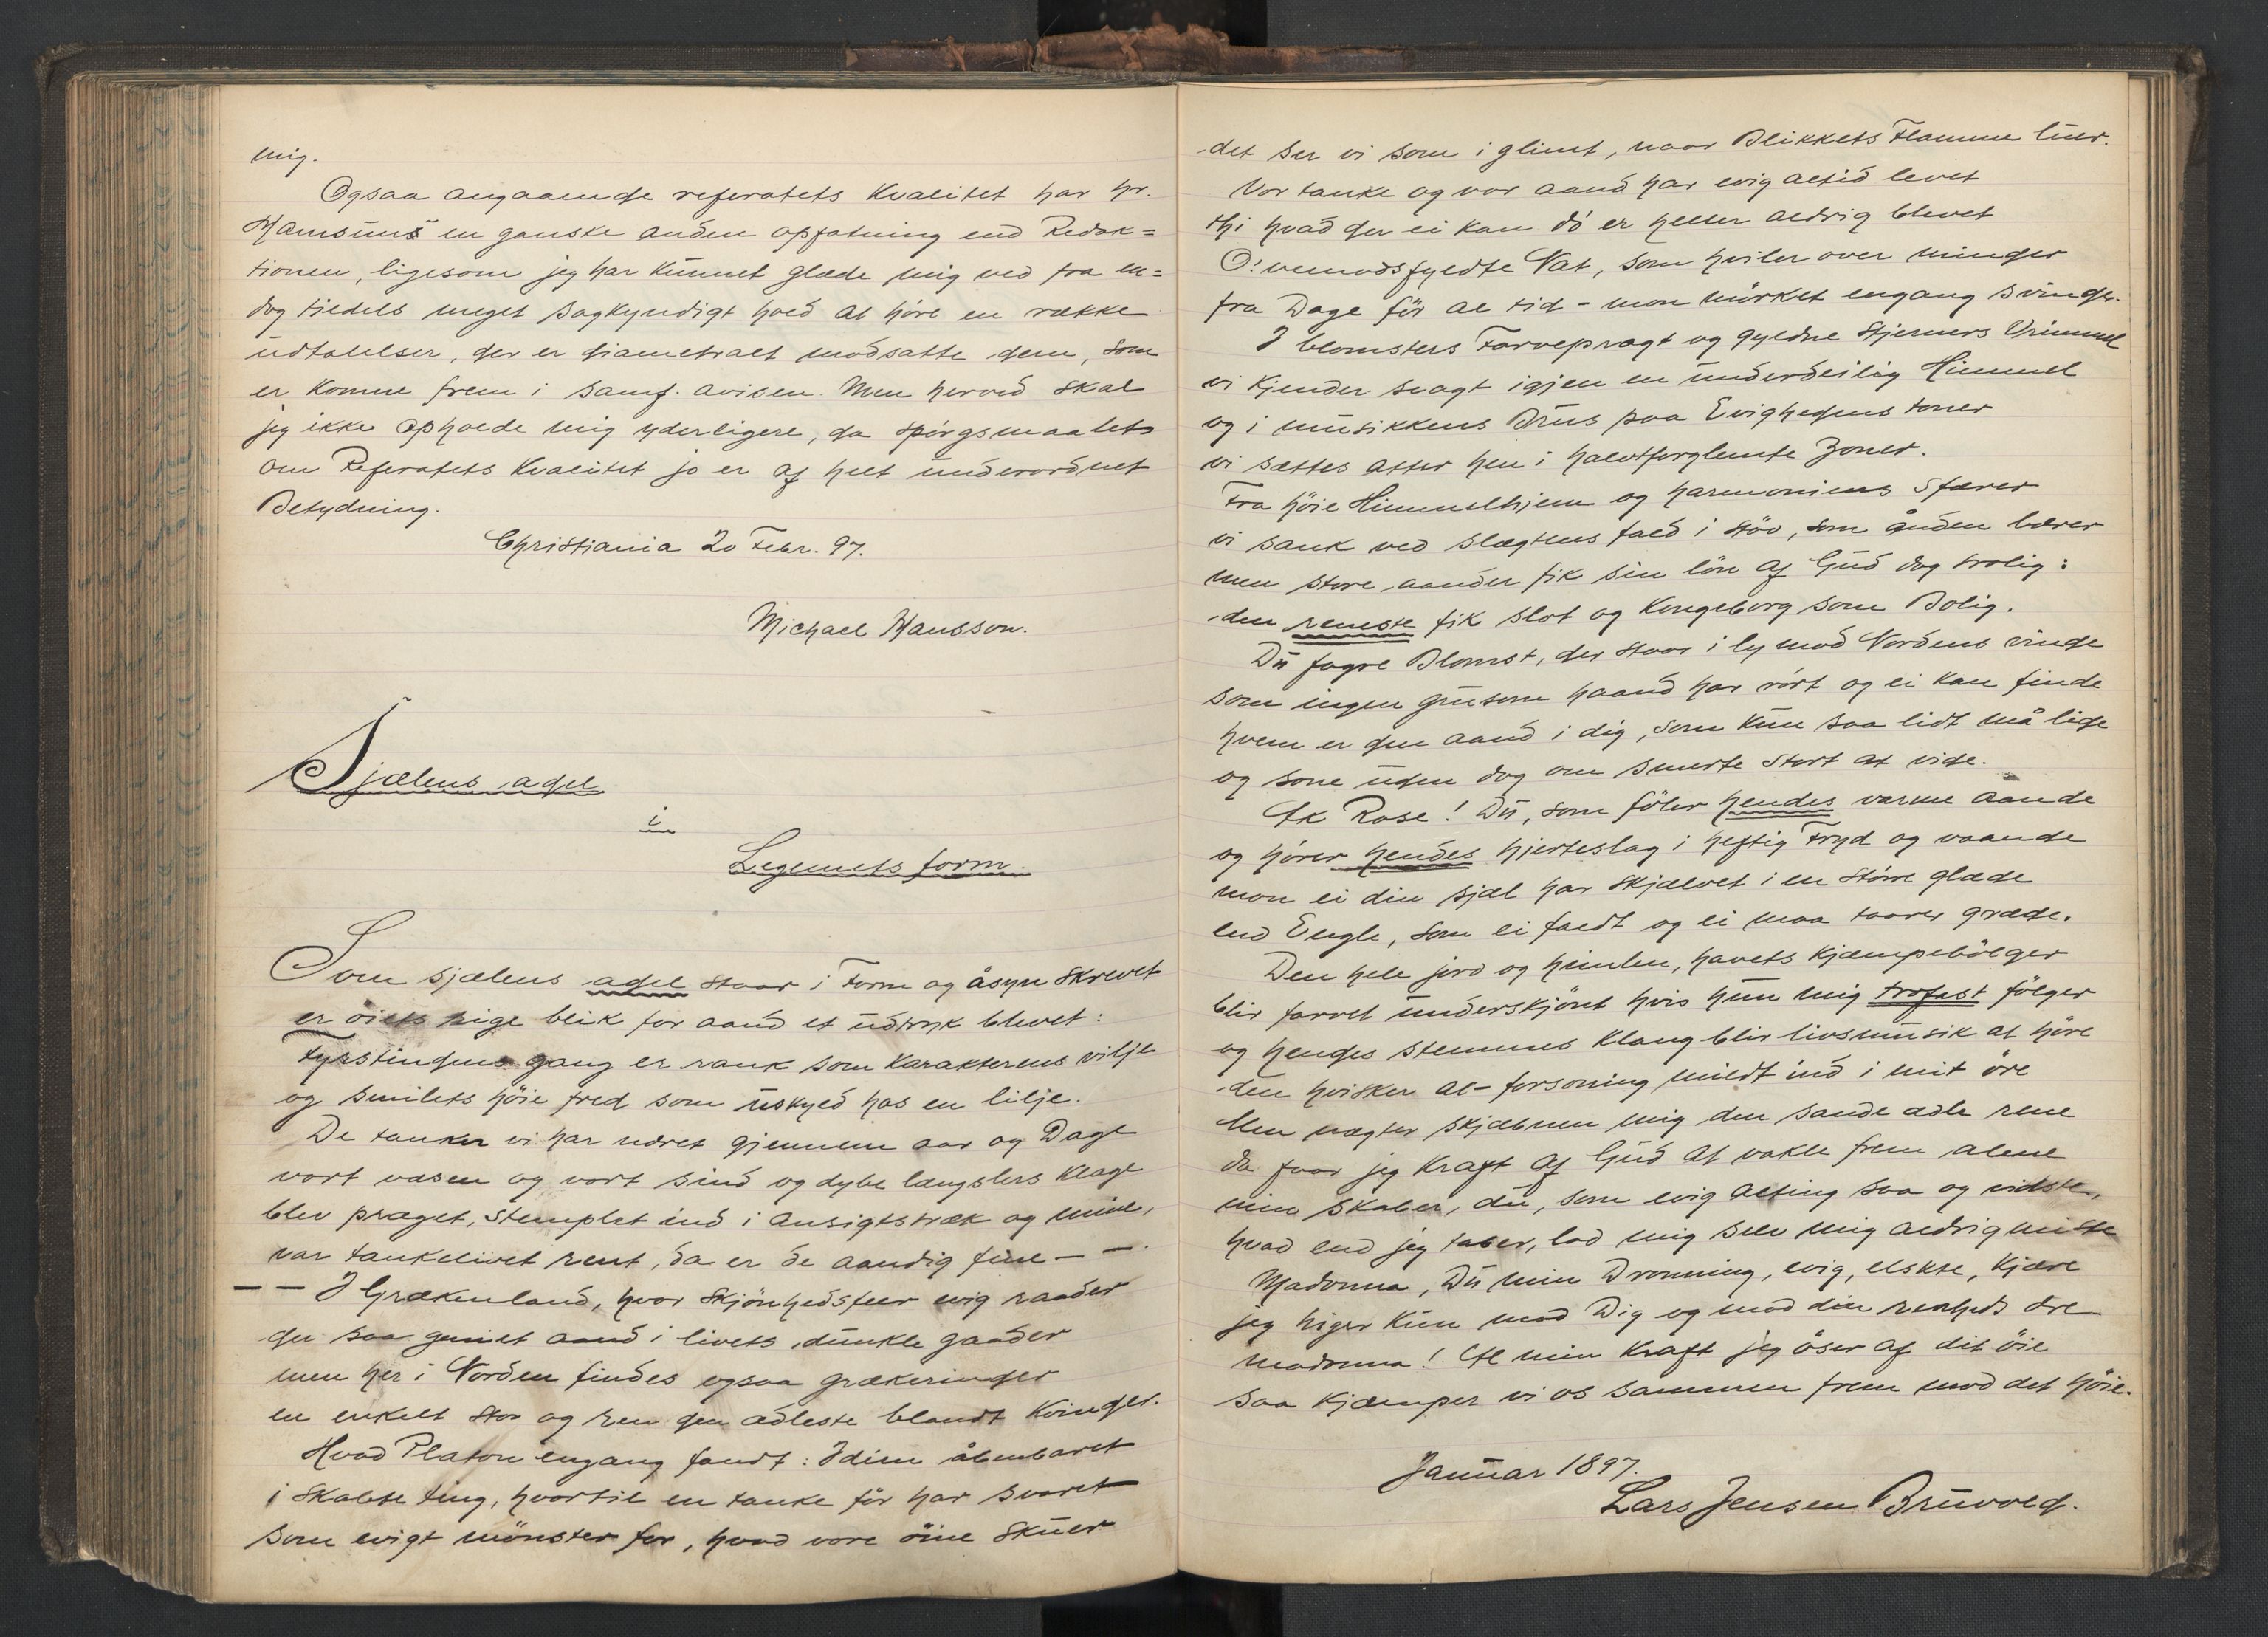 mig.
Ogsaa angaaende referatets Kvalitet har hr.
Hamsuns en ganske anden opfatning end Redak=
tionen, ligesom jeg har kunnet glæde mig ved fra en=
dog tildels meget sagkyndigt hold at höre en række
udtalelser, der er diametralt modsatte dem, som
er komne frem i samf. avisen. Men herved skal
jeg ikke opholde mig yderligere, da spörgsmaalet
om Referatets Kvalitet jo er af helt underordnet
Betydning.
Christiania 20 Febr. 97.
Michael Hansson.
Sjælens adel
i
Legemets form.
Som sjælens adel staar i Form og åsyn skrevet
er öiets rige blik for aand et udtryk blevet:
Fyrstindens gang er rank som Karakterens vilje
og smilets höie fred som uskyld hos en lilje.
De tanker vi har næret gjennem aar og Dage
vort væsen og vort sind og dybe længslers klage
blev præget, stemplet ind i ansigtstræk og mine,
var tankelivet rent, da er de aandig fine — —.
— — I Grækenland, hvor Skjönhedsfeer evig raader
der saa geniet aand i livets dunkle gaader
men her i Norden findes ogsaa grækerinder
en enkelt stor og ren den ædleste blandt Kvinder.
Hvad Platon engang fandt: Idéen åbenbaret
i skabte ting, hvortil en tanke för har svaret
som evigt mönster for, hvad vore öine skuer
det ser vi som i glimt, naar Blikkets Flamme luer.
Vor tanke og vor aand har evig altid levet
thi hvad der ei kan dö er heller aldrig blevet
O! vemodsfyldte Nat, som hviler over minder
fra Dage för al tid – mon mörket engang svinder.
I blomsters Farvepragt og gyldne Stjerners Vrimmel
vi kjender svagt igjen en underdeilig Himmel
og i musikkens Brus paa Evighedens toner
vi sættes atter hen i halvtforglemte Zoner.
Fra höie Himmelhjem og harmoniens Sfærer
vi sank ved slægtens fald i Stöv, som ånden bærer
men store aander fik sin lön af Gud dog trolig:
den reneste fik slot og Kongeborg som Bolig.
Du fagre Blomst, der staar i ly mod Nordens vinde
som ingen grusom haand har rört og ei kan finde
hvem er den aand i dig, som kun saa lidt må lide
og sone uden dog om smerte stort at vide.
Ak Rose! Du, som föler hendes varme aande
og hörer hendes hjerteslag i heftig Fryd og vaande
mon ei din sjæl har skjælvet i en större glæde
end Engle, som ei faldt og ei maa taarer græde.
Den hele jord og himlen, havets kjæmpebölger
blir farvet underskjönt hvis hun mig trofast fölger
og hendes stemmes klang blir livsmusik at höre
den hvisker al-forsoning mildt ind i mit öre
Men nægter skjæbnen mig den sande ædle rene
da faar jeg Kraft af Gud at vakle frem alene
min skaber, du, som evig alting saa og vidste,
hvad end jeg taber, lad mig selv mig aldrig miste
Madonna, Du min Dronning, evig, elskte, kjære
jeg higer kun mod Dig og mod din renheds ære
madonna! Al min Kraft jeg öser af dit öie
saa kjæmper vi os sammen frem mod det höie.
Januar 1897.
Lars Jensen Bruvold.